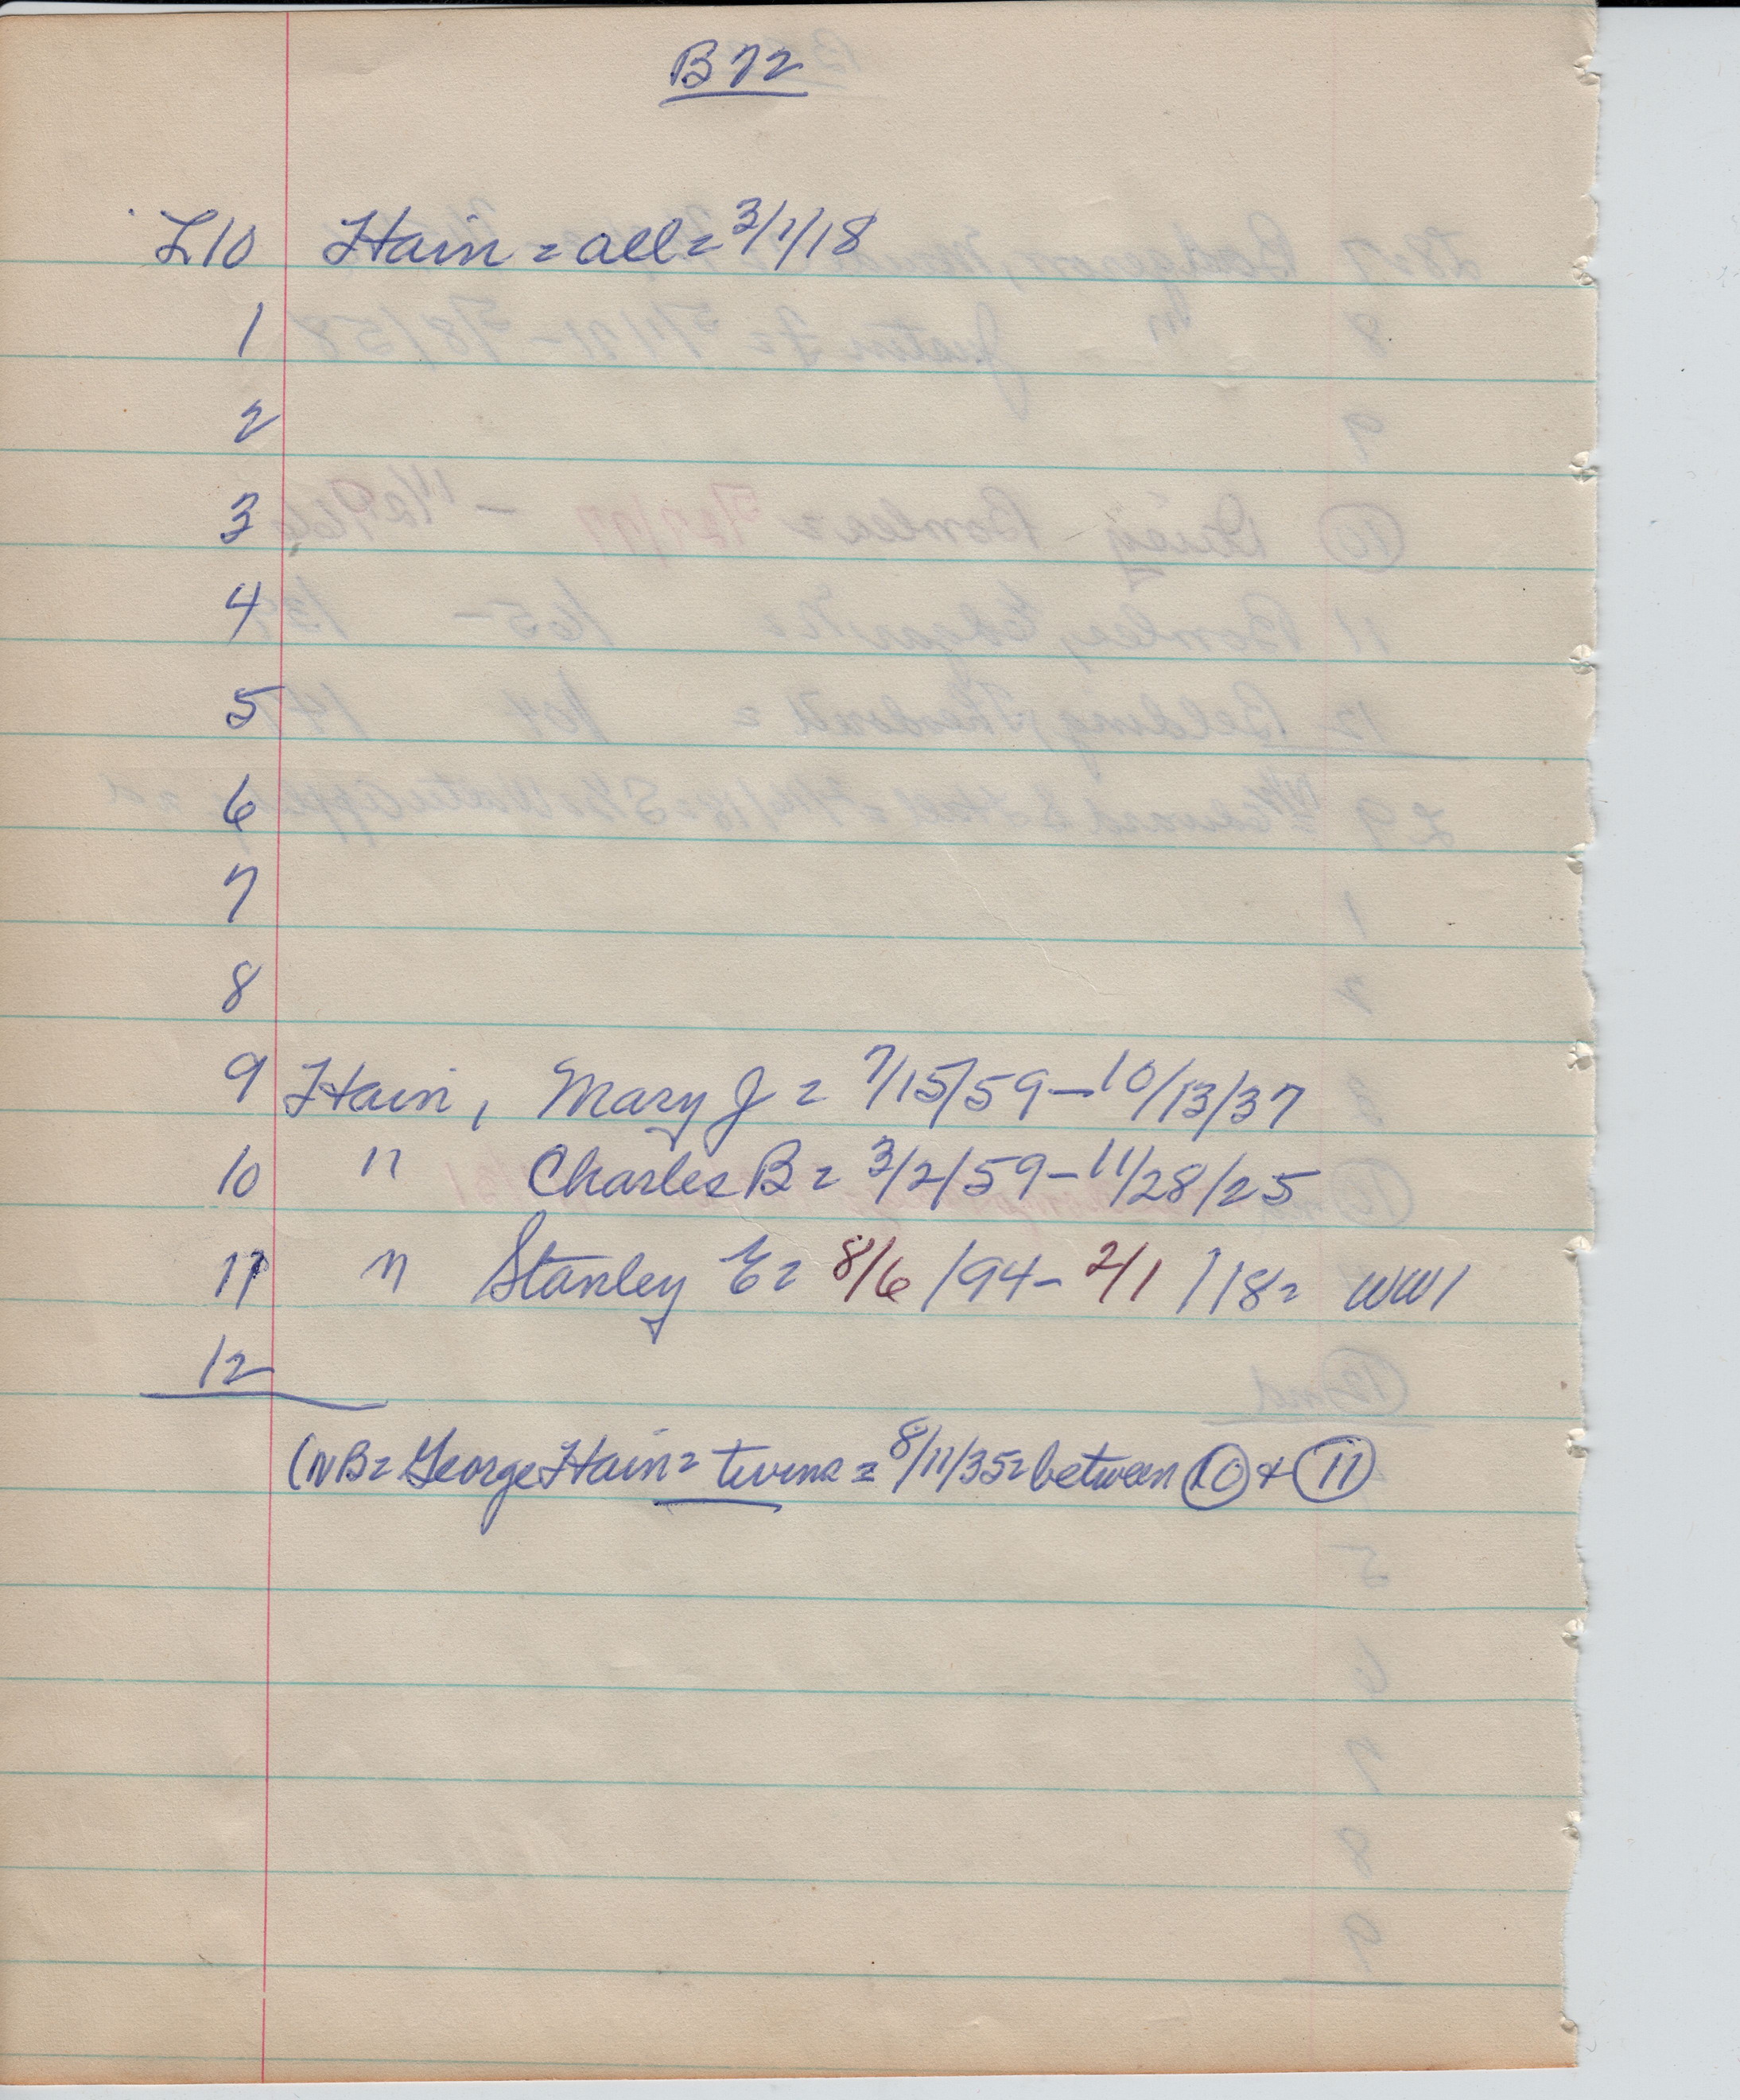 B72
L10 Hain = all = 3/1/18
1
2
3
4
5
6
7
8
9 Hain, Mary J = 7/15/59 - 10/13/37
10 " Charles B = 3/2/59 - 11/28/25
11 " Stanley E = 8/6/94 - 2/1/18 = WW1
12
(NB = George Hain = twins = 8/11/35 = between 10 + 11